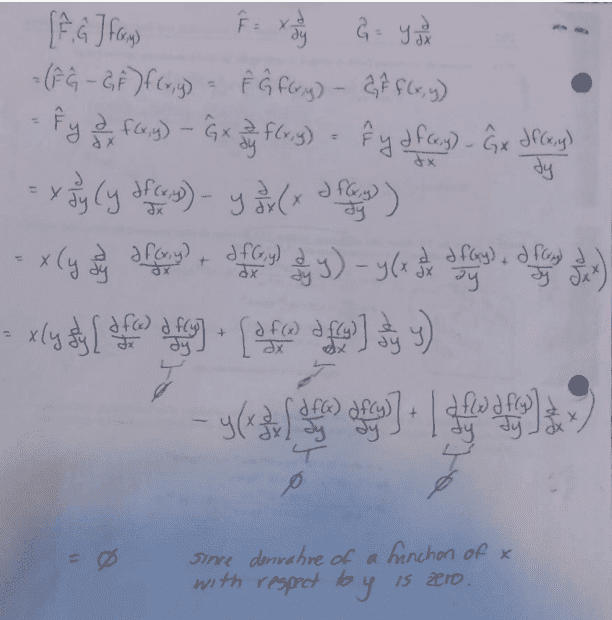 [F̂,Ĝ]f(x,y) F̂ = x ∂/∂y Ĝ = y ∂/∂x
= (F̂Ĝ - ĜF̂)f(x,y) = F̂Ĝf(x,y) - ĜF̂f(x,y)
= F̂y ∂/∂x f(x,y) - Ĝx ∂/∂y f(x,y) = F̂y ∂f(x,y)/∂x - Ĝx ∂f(x,y)/∂y
= x ∂/∂y (y ∂f(x,y)/∂x) - y ∂/∂x (x ∂f(x,y)/∂y)
= x(y ∂/∂y ∂f(x,y)/∂x + ∂f(x,y)/∂x ∂/∂y y) - y(x ∂/∂x ∂f(x,y)/∂y + ∂f(x,y)/∂y ∂/∂x x)
= x(y ∂/∂y [∂f(x)/∂x ∂f(y)/∂y] + [∂f(x)/∂x ∂f(y)/∂x] ∂/∂y y)
∅ ∅
- y(x ∂/∂x [∂f(x)/∂y ∂f(y)/∂y] + [∂f(x)/∂y ∂f(y)/∂y] ∂/∂x x)
∅ ∅
= ∅ since derivative of a function of x
with respect to y is zero.